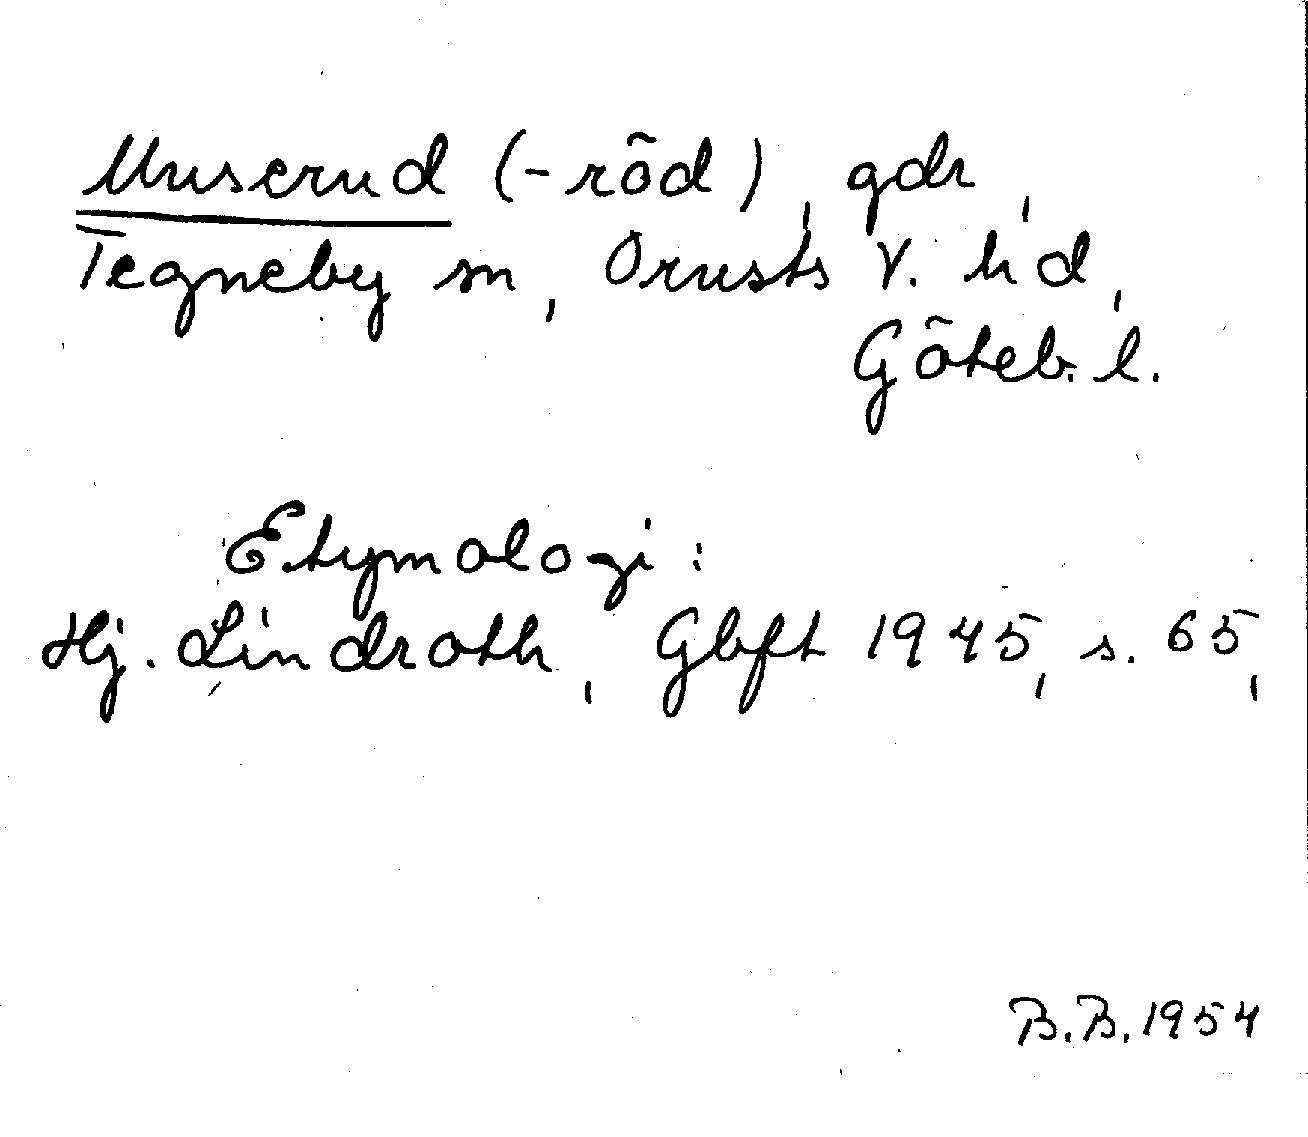 Muserud (-röd), gdr,
Tegneby sn, Orusts V. hd,
Göteb. l.
Etymologi:
Hj. Lindroth, Gbft 1945, s. 65,
B.B. 1954